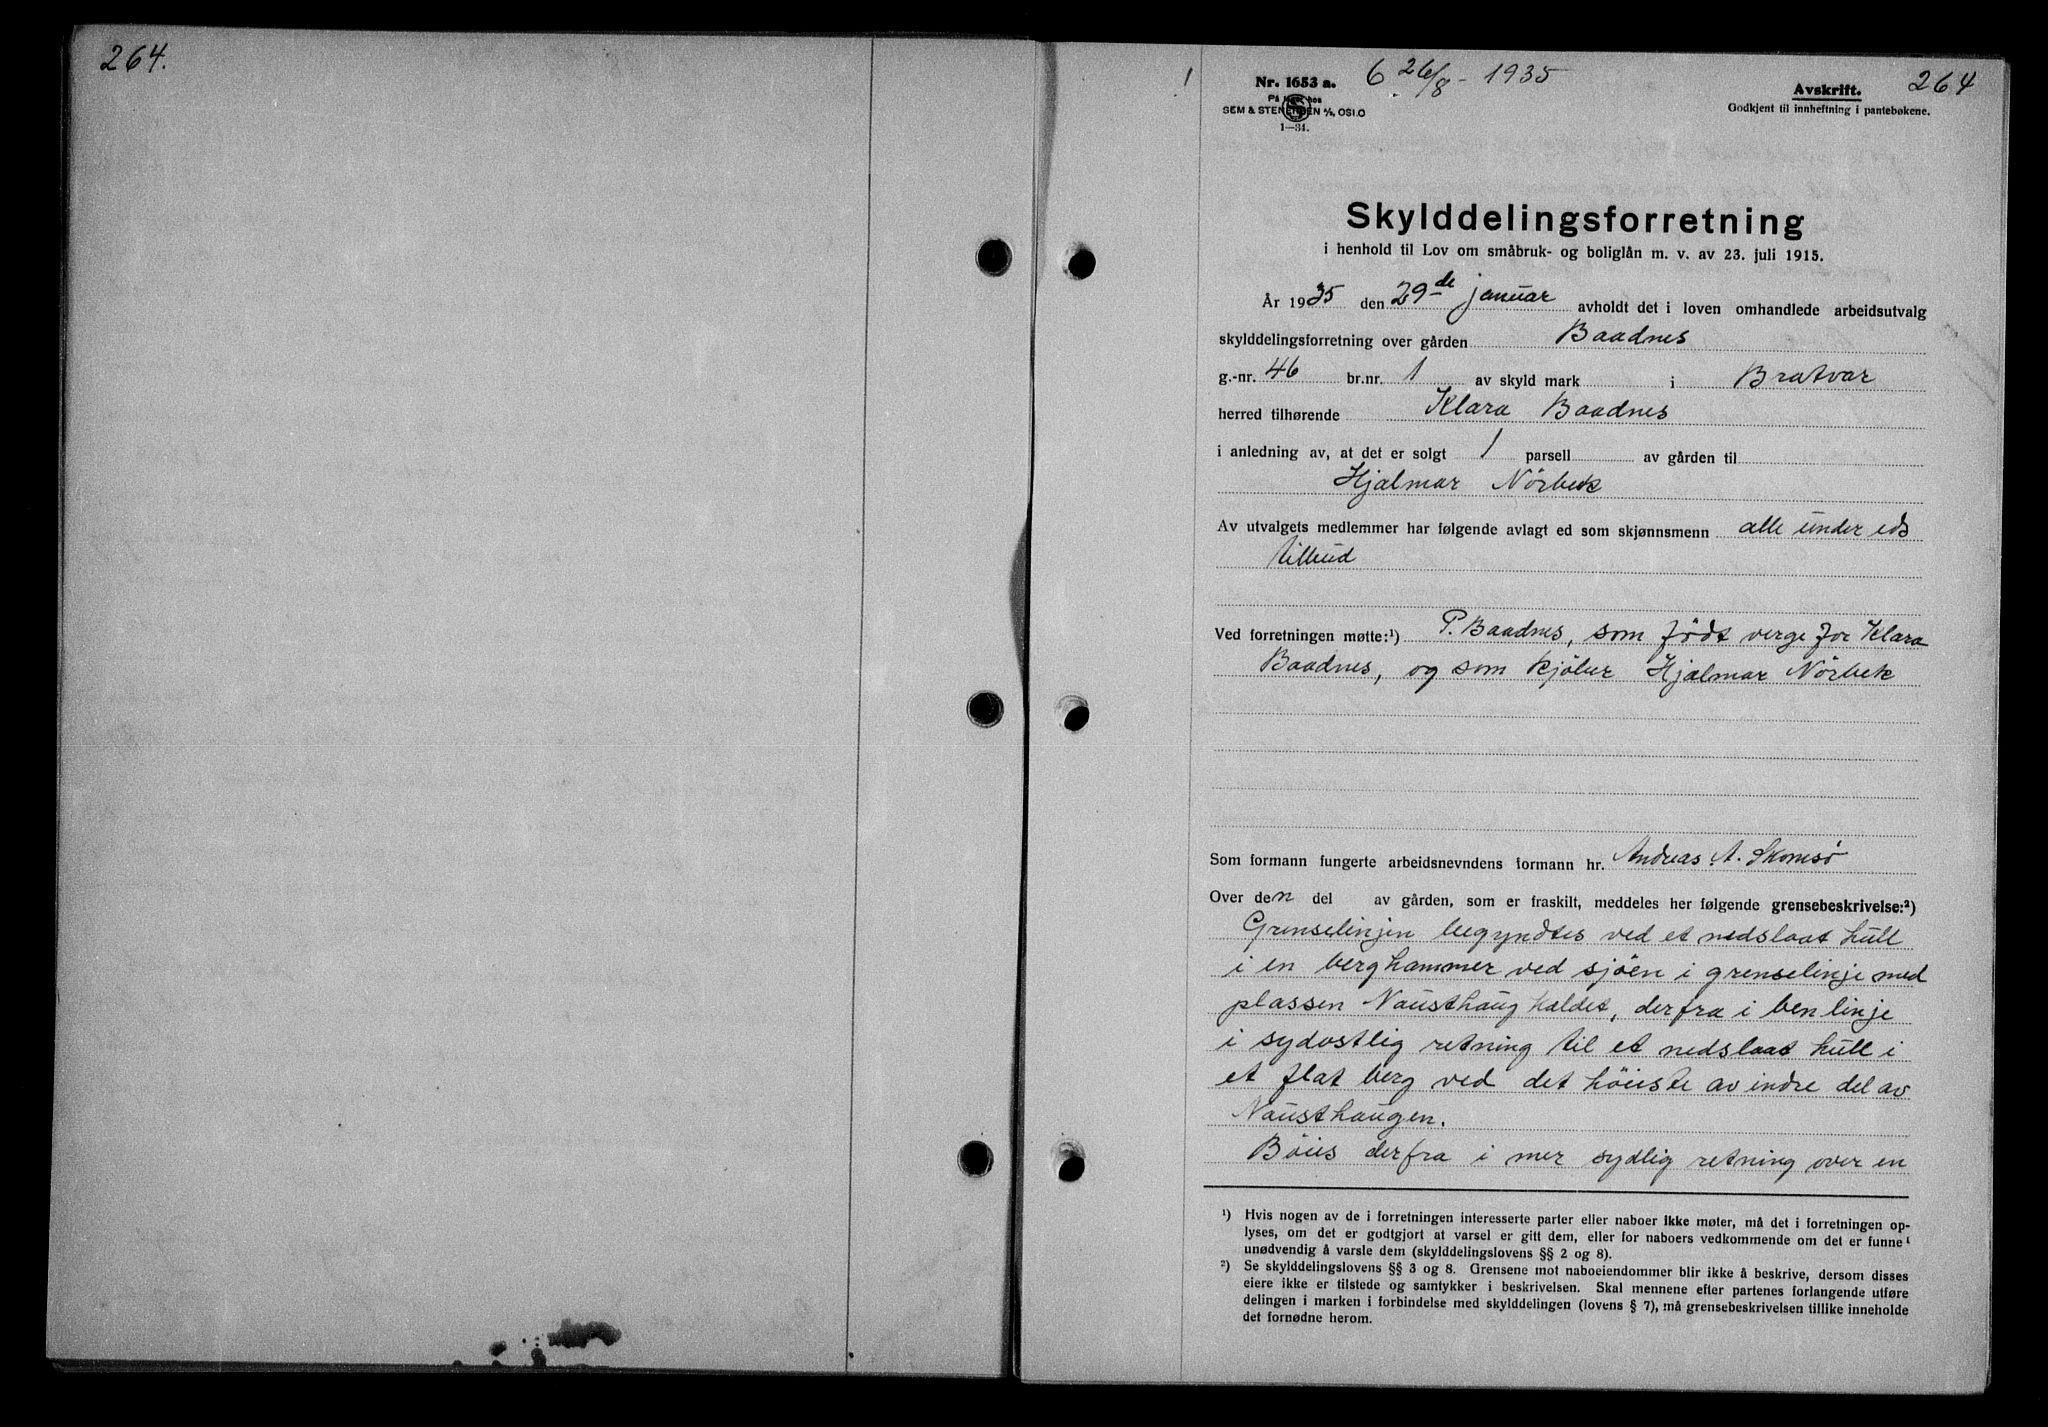 264.
1
Nr. 1653 a.
På lager hos
SEM & STENERSEN A/S, OSLO
1—31.
6 26/8 - 1935
Avskrift.
264
Godkjent til innheftning i pantebøkene.
Skylddelingsforretning
i henhold til Lov om småbruk- og boliglån m. v. av 23. juli 1915.
År 1935 den 29de januar avholdt det i loven omhandlede arbeidsutvalg
skylddelingsforretning over gården Baadnes
g.-nr. 46 br.nr. 1 av skyld mark i Bratvær
herred tilhørende Klara Baadnes
i anledning av, at det er solgt 1 parsell av gården til
Hjalmar Nørbek
Av utvalgets medlemmer har følgende avlagt ed som skjønnsmenn alle under eds
tilbud
Ved forretningen møtte:¹) P. Baadnes, som født verge for Klara
Baadnes, og som kjøber Hjalmar Nørbek
Som formann fungerte arbeidsnevndens formann hr. Andreas A. Skomsø
Over den del av gården, som er fraskilt, meddeles her følgende grensebeskrivelse:²)
Grenselinjen begyndtes ved et nedslaat hull
i en berghammer ved sjøen i grenselinje med
plassen Nausthaug haldet, derfra i ben linje
i sydostlig retning til et nedslaat hull i
et flat berg ved det høieste av indre del av
Nausthaugen.
Bøies derfra i mer sydlig retning over en
¹) Hvis nogen av de i forretningen interesserte parter eller naboer ikke møter, må det i forretningen op-
lyses, om det er godtgjort at varsel er gitt dem, eller for naboers vedkommende om det er funnet
unødvendig å varsle dem (skylddelingslovens §§ 2 og 8).
²) Se skylddelingslovens §§ 3 og 8. Grensene mot naboeiendommer blir ikke å beskrive, dersom disses
eiere ikke er tilstede og samtykker i beskrivelsen. Skal mennene efter partenes forlangende utføre
delingen i marken i forbindelse med skylddelingen (lovens § 7), må grensebeskrivelsen tillike inneholde
det fornødne herom.